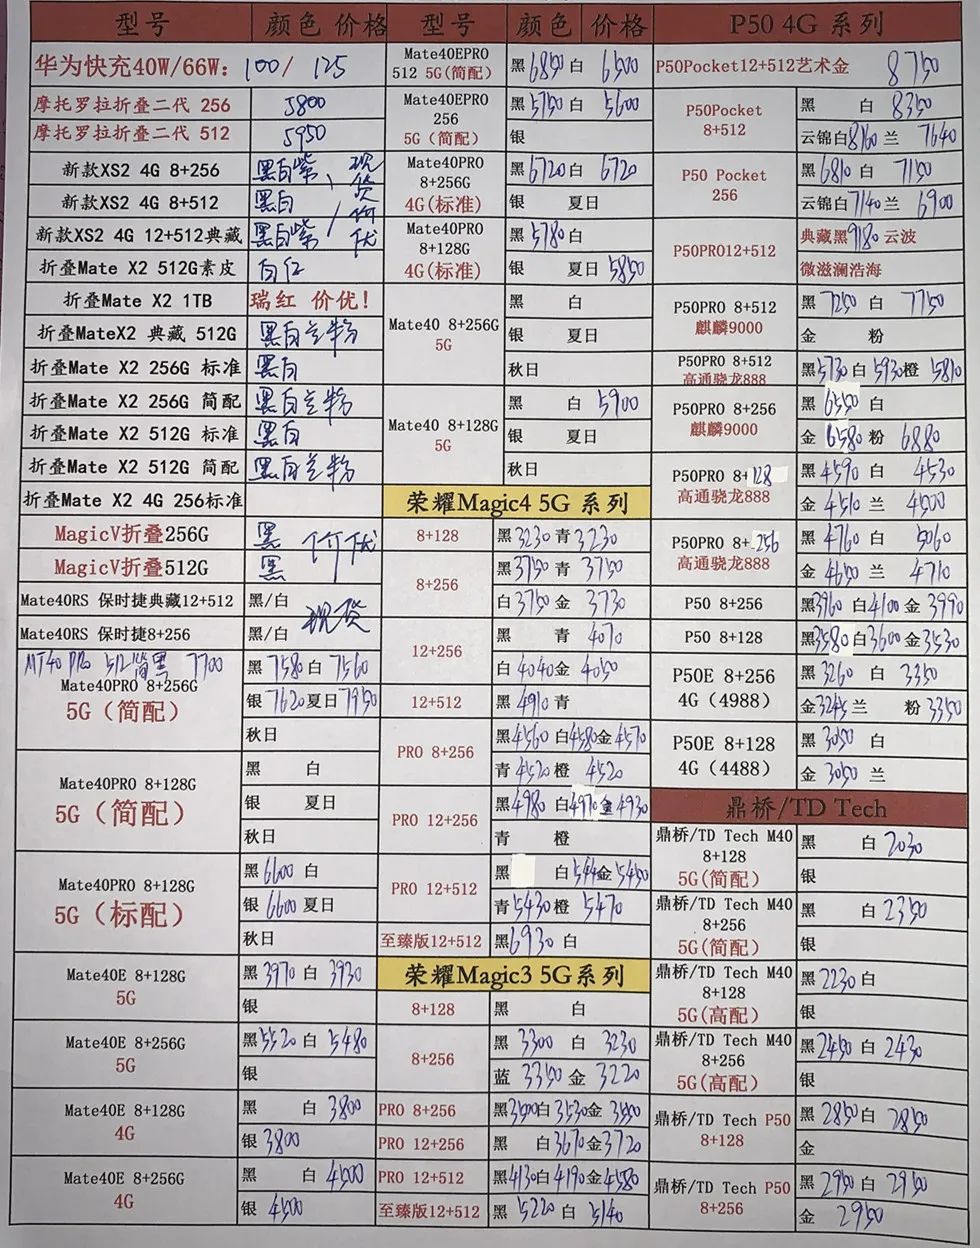 型号 颜色 价格
华为快充40W/66W: 100/ 125
摩托罗拉折叠二代 256 5800
摩托罗拉折叠二代 512 5950
新款XS2 4G 8+256 黑白紫、现货
新款XS2 4G 8+512 黑白
新款XS2 4G 12+512典藏 黑白紫/价优
折叠Mate X2 512G素皮 白红
折叠Mate X2 1TB 瑞红 价优!
折叠MateX2 典藏 512G 黑白兰粉
折叠Mate X2 256G 标准 黑白
折叠Mate X2 256G 简配 黑白兰粉
折叠Mate X2 512G 标准 黑白
折叠Mate X2 512G 简配 黑白兰粉
折叠Mate X2 4G 256标准
MagicV折叠256G 黑 价优
MagicV折叠512G 黑
Mate40RS 保时捷典藏12+512 黑/白 现货
Mate40RS 保时捷8+256 黑/白
MT40 PRo 512简黑 7700
Mate40PRO 8+256G
5G（简配）
黑 7580 白 7560
银 7620 夏日 7950
秋日
Mate40PRO 8+128G
5G（简配）
黑 白
银 夏日
秋日
Mate40PRO 8+128G
5G（标配）
黑 6600 白
银 6600 夏日
秋日
Mate40E 8+128G
5G
黑 3970 白 3930
银
Mate40E 8+256G
5G
黑 5520 白 5480
银
Mate40E 8+128G
4G
黑 白 3800
银 3800
Mate40E 8+256G
4G
黑 白 4500
银 4500
型号 颜色 价格
Mate40EPRO
512 5G(简配)
黑 6850 白 6500
Mate40EPRO
256
5G（简配）
黑 5750 白 5600
银
Mate40PRO
8+256G
4G(标准)
黑 6720 白 6720
银 夏日
Mate40PRO
8+128G
4G(标准)
黑 5780 白
银 夏日 5850
Mate40 8+256G
5G
黑 白
银 夏日
秋日
Mate40 8+128G
5G
黑 白 5900
银 夏日
秋日
荣耀Magic4 5G 系列
8+128 黑 3230 青 3230
8+256
黑 3750 青 3750
白 3750 金 3730
12+256
黑 青 4070
白 4040 金 4050
12+512 黑 4910 青
PRO 8+256
黑 4560 白 4580 金 4570
青 4520 橙 4520
PRO 12+256
黑 4980 白 4970 金 4930
青 橙
PRO 12+512
黑 白 544 金 5450
青 5430 橙 5470
至臻版12+512 黑 6930 白
荣耀Magic3 5G系列
8+128 黑 白
8+256
黑 3300 白 3230
蓝 3350 金 3220
PRO 8+256 黑 3500 白 3530 金 3550
PRO 12+256 黑 白 3670 金 3720
PRO 12+512 黑 4130 白 4190 金 4580
至臻版12+512 黑 5220 白 5140
P50 4G 系列
P50Pocket12+512艺术金 8750
P50Pocket
8+512
黑 白 8350
云锦白 8160 兰 7640
P50 Pocket
256
黑 6810 白 7150
云锦白 7140 兰 6900
P50PRO12+512
典藏黑 9180 云波
微滋澜浩海
P50PRO 8+512
麒麟9000
黑 7250 白 7750
金 粉
P50PRO 8+512
高通骁龙888
黑 5730 白 5930 橙 5810
P50PRO 8+256
麒麟9000
黑 6550 白
金 6580 粉 6880
P50PRO 8+128
高通骁龙888
黑 4590 白 4530
金 4510 兰 4500
P50PRO 8+256
高通骁龙888
黑 4760 白 5060
金 4650 兰 4710
P50 8+256 黑 3960 白 4100 金 3990
P50 8+128 黑 3580 白 3600 金 3530
P50E 8+256
4G（4988）
黑 3260 白 3350
金 3245 兰 粉 3350
P50E 8+128
4G（4488）
黑 3050 白
金 3050 兰
鼎桥/TD Tech
鼎桥/TD Tech M40
8+128
5G(简配)
黑 白 2030
银
鼎桥/TD Tech M40
8+256
5G(简配)
黑 白 2350
银
鼎桥/TD Tech M40
8+128
5G(高配)
黑 2230 白
银
鼎桥/TD Tech M40
8+256
5G(高配)
黑 2450 白 2430
银
鼎桥/TD Tech P50
8+128
黑 2850 白 2850
金
鼎桥/TD Tech P50
8+256
黑 2950 白 2950
金 2950